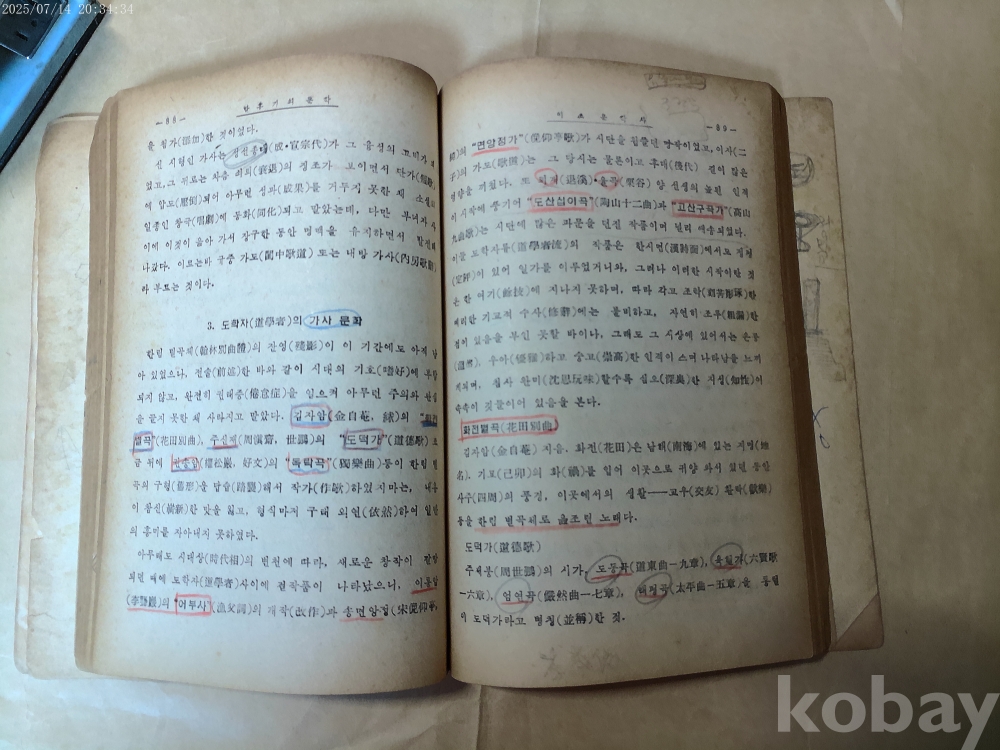 2025/07/14 20:34:34
—88—
을 첨가(添加)한 것이었다.
신 시험인 가사는
에 압도(壓倒)되어 아무런 성과(成果)를 거두지 못한 채
일종인 창극(唱劇)에 동화(同化)되고 말았는데, 다만 부녀자
이에 이것이 흘아 가서 장구한 동안 명맥을 유지하면서 발전
나갔다. 이르는바 규중 가도(閨中歌道) 또는 내방 가사(內房歌辭)
라 부르는 것이다.
3. 도학자(道學者)의 가사 문학
한림 별곡체(翰林別曲體)의 잔영(殘影)이 이 기간에도 아직 남
아 있었으나, 전술(前述)한 바와 같이 시대의 기호(嗜好)에 부합
되지 않고, 완전히 권태증(倦怠症)을 일으켜 아무런 주의와 관심
을 끌지 못한 채 사라지고 말았다. 김자암(金自菴, 絿)의
별곡"(花田別曲), 주신재(周愼齋, 世鵬)의 "도덕가"(道德歌)
"독락곡"(獨樂曲)등이 한림 별
곡의 구형(舊形)을 답습(踏襲)해서 작가(作歌)하였지마는, 내용
이 참신(斬新)한 맛을 잃고, 형식마저 구태 의연(依然)하여 일반
의 흥미를 자아내지 못하였다.
아무래도 시대상(時代相)의 변천에 따라, 새로운 창작이 갈망
되던 때에 도학자(道學者)사이에 걸작품이 나타났으니, 이농암
(李聾巖)의 "어부사"(漁父詞)의 개작(改作)과 송면앙정(宋俛仰亭,
이조문학사
—89—
"면앙정가"(俛仰亭歌)가 시단을
영향을 끼쳤다. 또 퇴계(退溪)·율곡(栗谷) 양 선생의 높은 인격
이 시작에 풍기어 "도산십이곡"(陶山十二曲)과 "고산구곡가"(高山
九曲歌)는 시단에 많은 파문을 던진 작품이며 널리 애송되었다.
이들 도학자류(道學者流)의 작품은 한시면(漢詩面)에서도 정평
(定評)이 있어 일가를 이루었거니와, 그러나 이러한 시작이란 것
은 한 여기(餘技)에 지나지 못하며, 따라 각고 조탁(刻苦彫琢)한
예리한 기교적 수사(修辭)에는 불비하고, 자연히 조루(粗漏)한
점이 있음을 부인 못할 바이나, 그래도 그 시상에 있어서는 온유
우아(優雅)하고 숭고(崇高)한 인격이 스며 나타남을 느끼
게되며, 침사 완미(沈思玩味)할수록 심오(深奧)한 지성(知性)이
속속이 깃들어어 있음을 본다.
화전별곡(花田別曲)
김자암(金自菴) 지음. 화전(花田)은 남해(南海)에 있는 지명(地
名). 기묘(己卯)의 화(禍)를 입어 이곳으로 귀양 와서 있던 동안
사주(四周)의 풍경, 이곳에서의 생활——교우(交友) 환락(歡樂)
등을 한림 별곡체로 읊조린 노래다.
도덕가(道德歌)
주세붕(周世鵬)의 시가, 도동곡(道東曲—九章), 육현가(六賢歌
—六章), 엄연곡(儼然曲—七章), 태평곡(太平曲—五章)을 통털
어 도덕가라고 병칭(並稱)한 것.
kobay